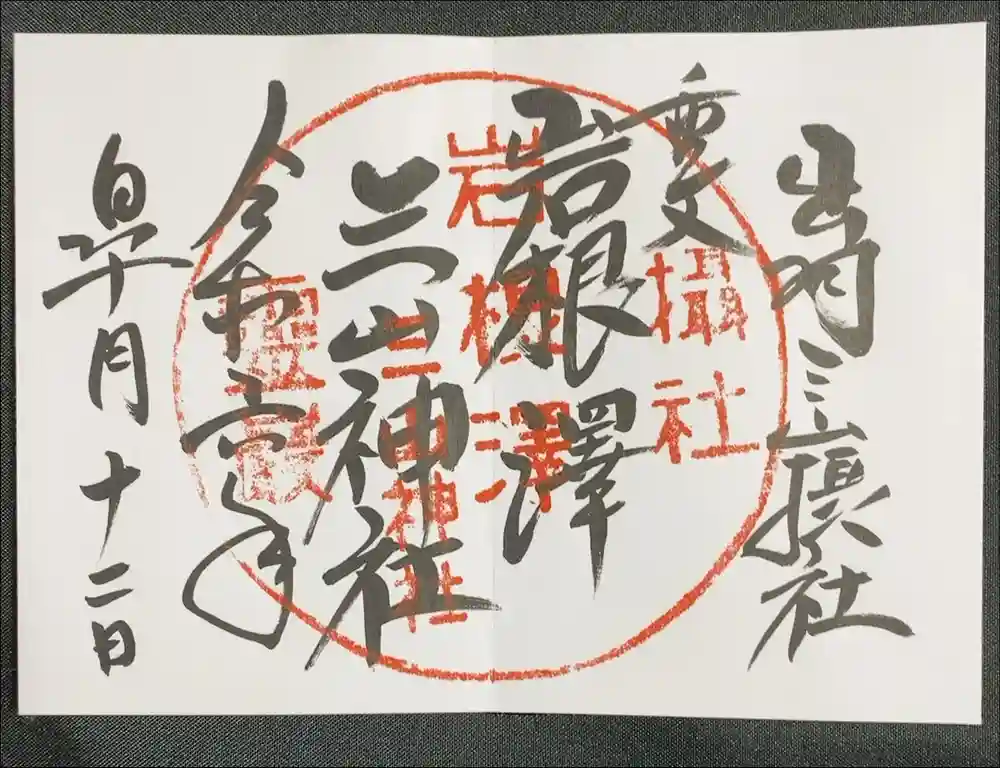 出羽三山摂社
重文
岩根澤
三山神社
令和六年
皐月十二日
攝社
岩根澤
三山神社